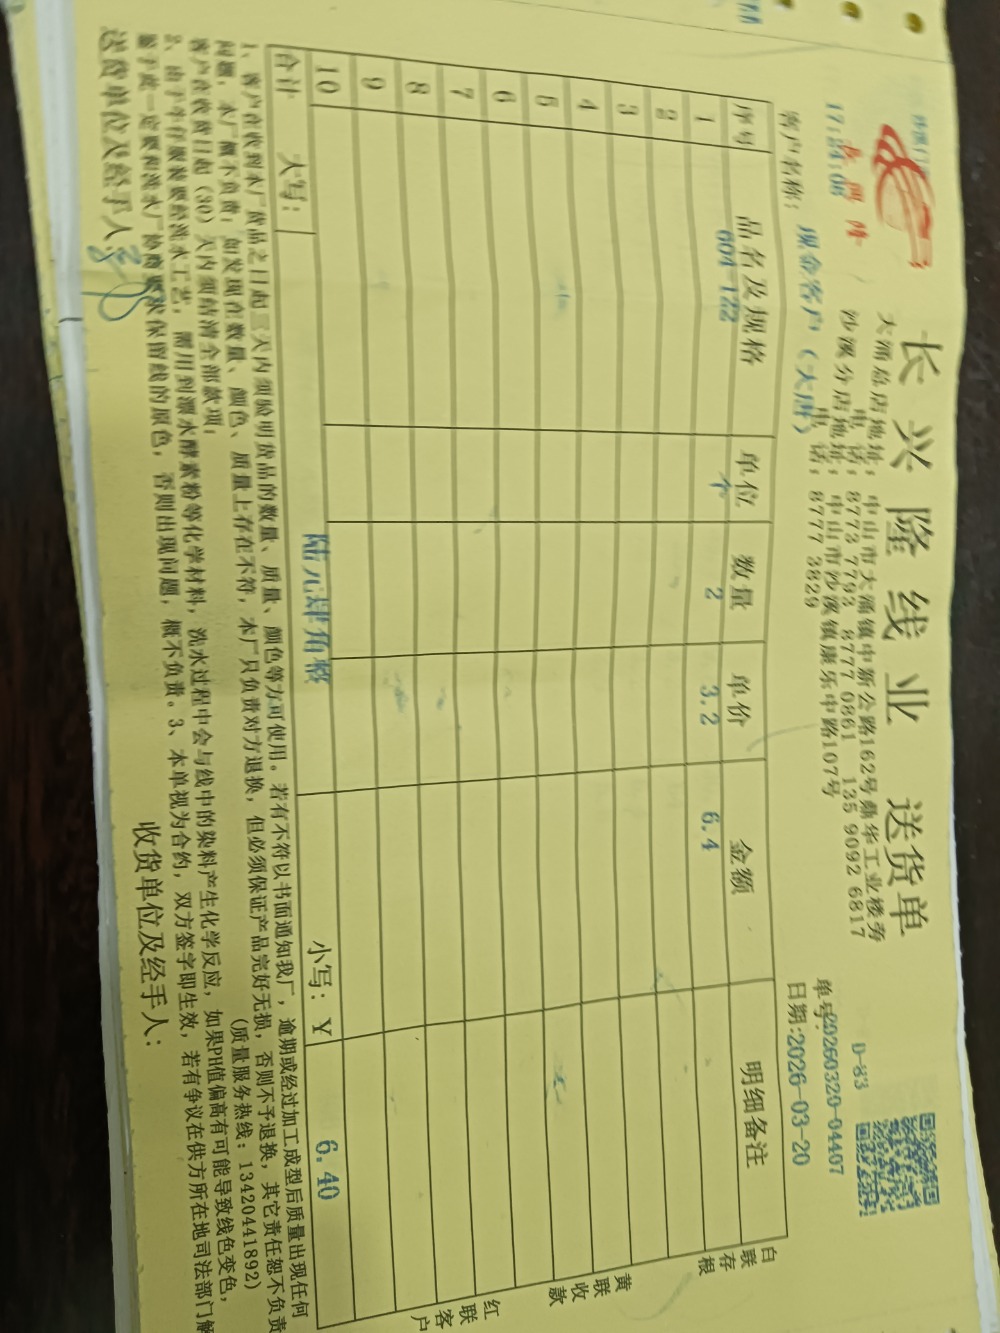 长兴隆线业 送货单
大涌总店地址：中山市大涌镇中新公路162号鼎华工业楼旁
电 话：8773 7793 8777 0861 135 9092 6817
沙溪分店地址：中山市沙溪镇康乐中路107号
电 话：8777 3829
17:24:06
D-83
单号:20260320-04407
客户名称：现金客户（大唐）
日期:2026-03-20
序号 品名及规格 单位 数量 单价 金额 明细备注
1 604 122 个 2 3.2 6.4
2
3
4
5
6
7
8
9
10
合计 大写： 陆元肆角整 小写：¥ 6.40
白联存根
黄联收款
红联客户
1、客户在收到本厂货品之日起三天内须验明货品的数量、质量、颜色等方可使用。若有不符以书面通知我厂，逾期或经过加工成型后质量出现任何
问题，本厂概不负责；如发现在数量、颜色、质量上存在不符，本厂只负责对方退换，但必须保证产品完好无损，否则不予退换，其它责任恕不负责
客户在收货日起（30）天内须结清全部款项； (质量服务热线：13420441892)
2、由于牛仔服装要经洗水工艺，需用到漂水酵素粉等化学材料，洗水过程中会与线中的染料产生化学反应，如果PH值偏高有可能导致线色变色，
鉴于此一定要和洗水厂协商要求保留线的原色，否则出现问题，概不负责。3、本单视为合约，双方签字即生效，若有争议在供方所在地司法部门解
送货单位及经手人： 收货单位及经手人：